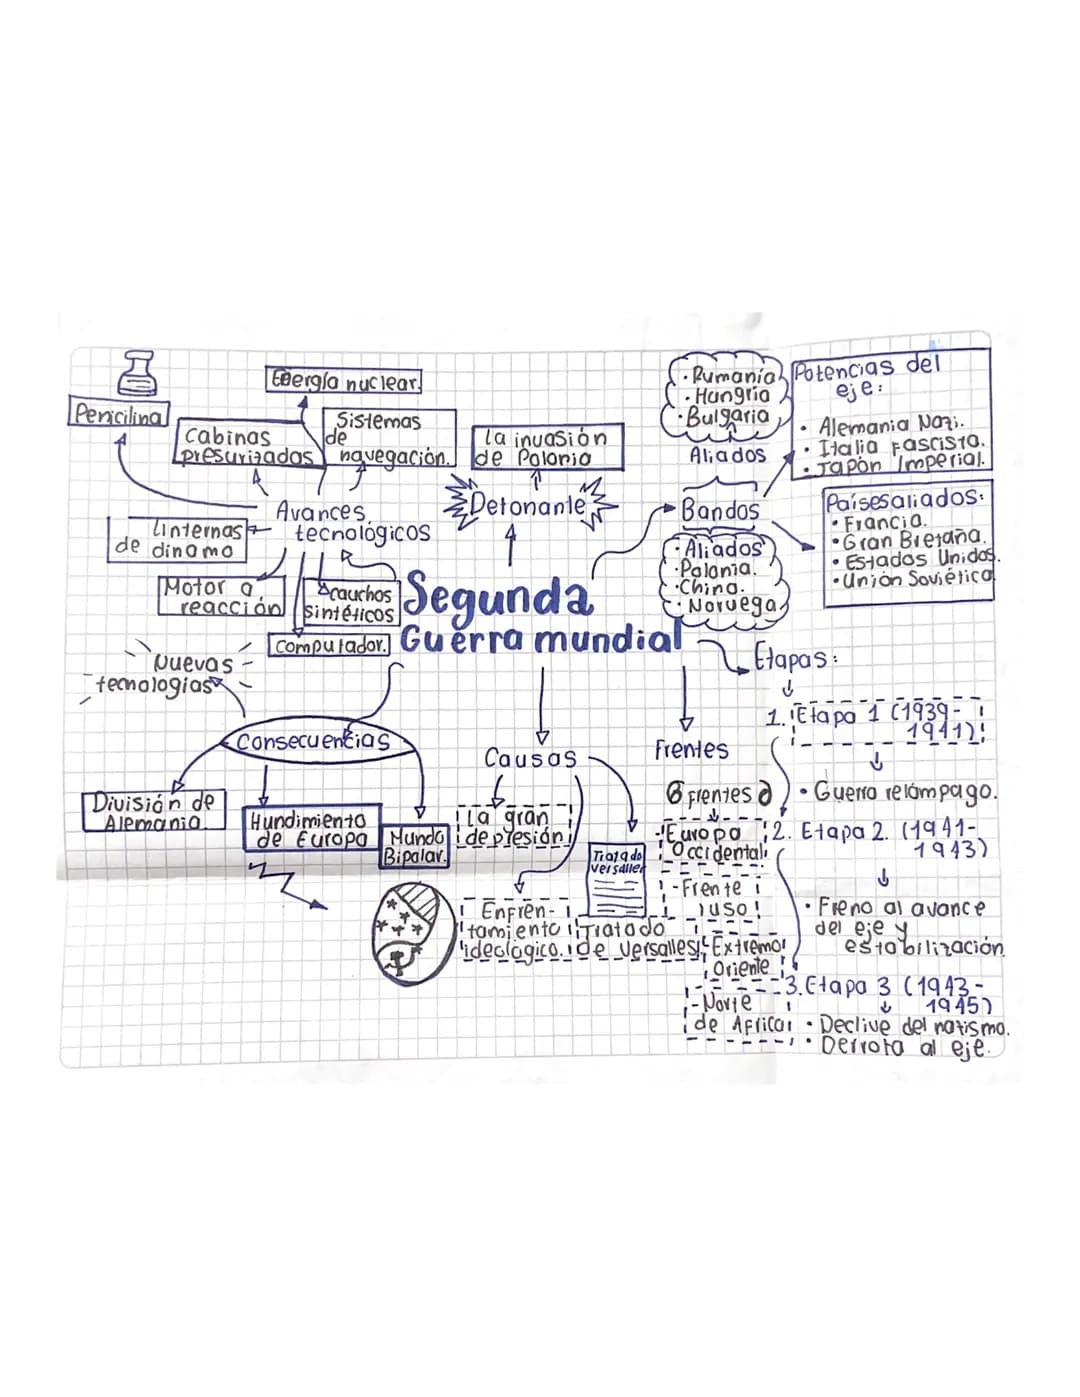 Segunda
Guerra mundial
Avances
tecnológicos
Penicilina
Cabinas
presurizadas
Energía nuclear.
Sistemas
de
navegación.
Linternas
de dinamo
Motor a
reacción
cauchos
sintéticos
computador.
Detonante
La invasión
de Polonia
Bandos
Aliados
·Rumania
·Hungria
·Bulgaria
Potencias del
eje:
• Alemania Nazi.
• Italia Fascista.
• Japón Imperial.
Paísesaliados:
• Francia.
• Gran Bretaña.
• Estados Unidos.
• Unión Soviética
·Aliados
·Polonia.
·China.
·Noruega
Etapas:
1. Etapa 1 (1939-
1941)
• Guerra relámpago.
2. Etapa 2. (1941-
1943)
• Freno al avance
del eje y
estabilización
3. Etapa 3 (1943-
1945)
• Declive del natismo.
• Derrota al eje.
Frentes
6 frentes
-Europa
Occidental
-Frente
ruso
-Extremo
Oriente
-Norte
de Africa
Causas
La gran
depresión
Enfren-
tamiento
ideologico.
Tratado
Versalles
Tratado
de Versalles
Consecuencias
Nuevas
tecnologias
División de
Alemania.
Hundimiento
de Europa
Mundo
Bipolar.